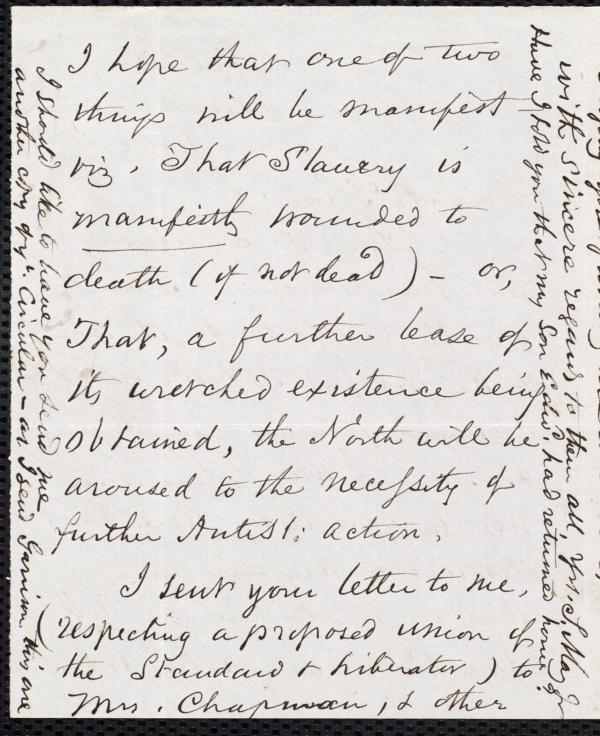 I hope that one of two
things will be manifest
viz. That Slavery is
manifestly wounded to
death (if not dead) – or,
That, a further lease of
its wretched existence being
obtained, the North will be
aroused to the necessity of
further Antisl: action.
I sent your letter to me,
(respecting a proposed union of
the Standard & Liberator) to
Mrs. Chapman, & other
I should like to have you send me
another copy of yr. Circular – as I send Garrison this one
with sincere regards to them all, Yrs. S. May Jr
Have I told you that my Son Edwd. had returned home